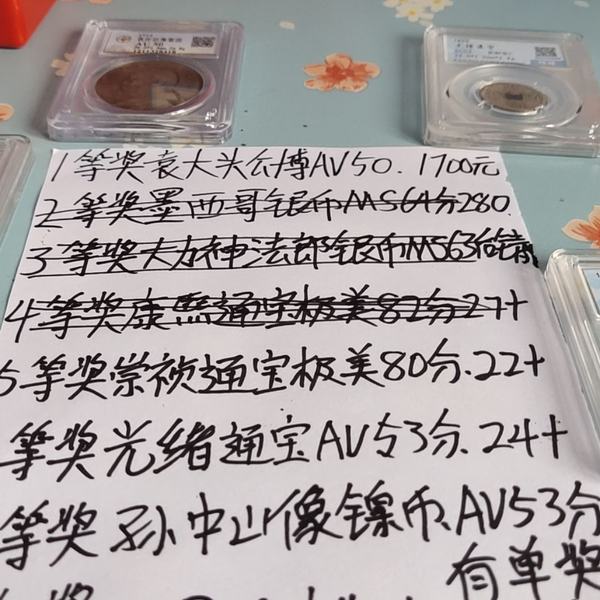 AU 50
1等奖袁大头公博AV50.1700元
2等奖墨西哥银币MS64分280.
3等奖大力神法郎银币MS63
4等奖康熙通宝极美82分27+
5等奖崇祯通宝极美80分.22+
等奖光绪通宝AV53分.24+
等奖孙中山像镍币.AV53分
有单奖